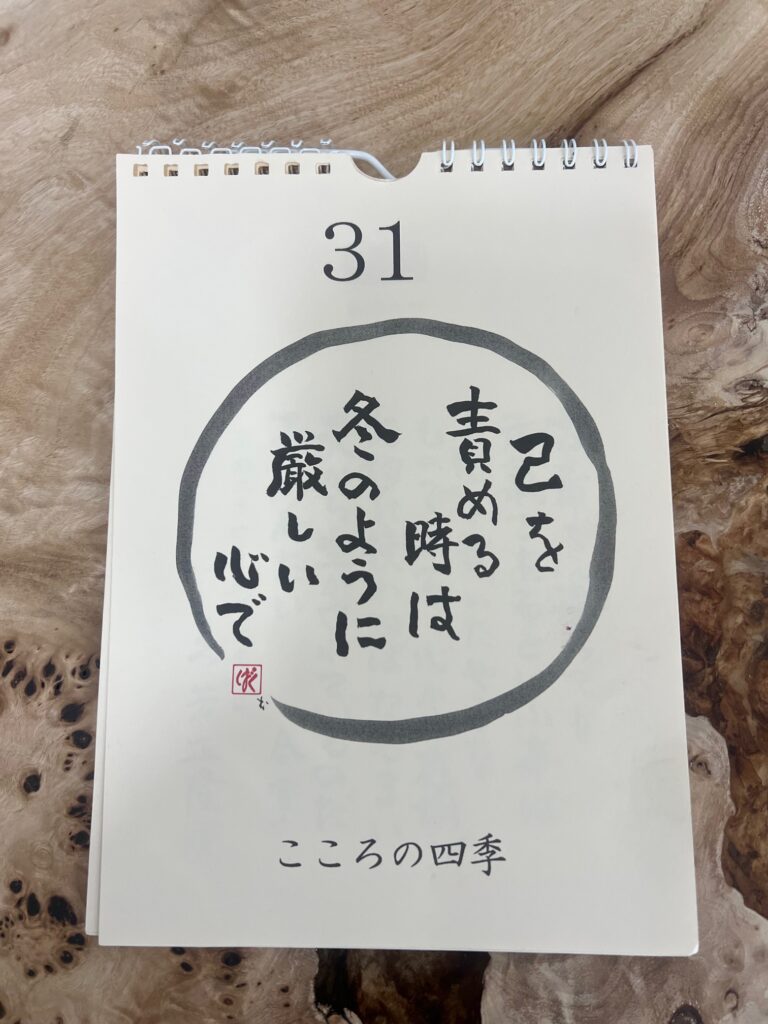 31
己を
責める
時は
冬のように
厳しい
心で
こころの四季